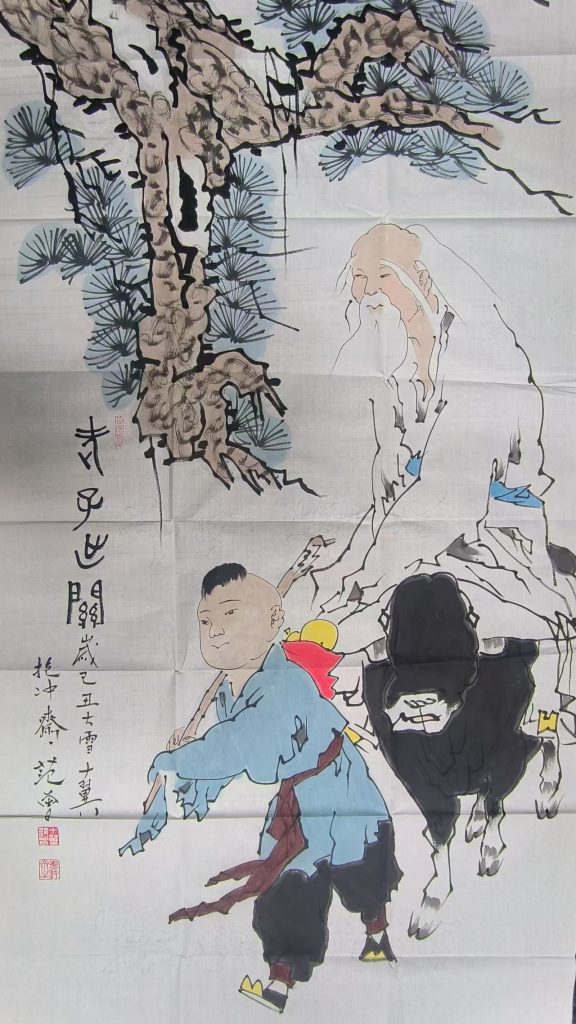 老子出關
歲己丑大雪十翼
抱冲齋、范曾